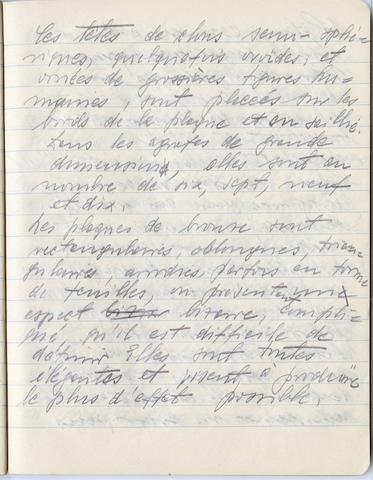 Les têtes de clous semi-sphé-
riques, quelquefois ovoïdes, et
ornées de grossières figures hu-
maines, sont placées sur les
bords de la plaque et en saillie.
Dans les agrafes de grande
dimension, elles sont au
nombre de six, sept, neuf
et dix.
Les plaques de bronze sont
rectangulaires, oblongues, trian-
gulaires, arrondies, parfois en forme
de feuilles, ou présentent un
aspect bizarre, compli-
qué qu'il est difficile de
définir. Elles sont toutes
élégantes et visent à produire
le plus d'effet possible.